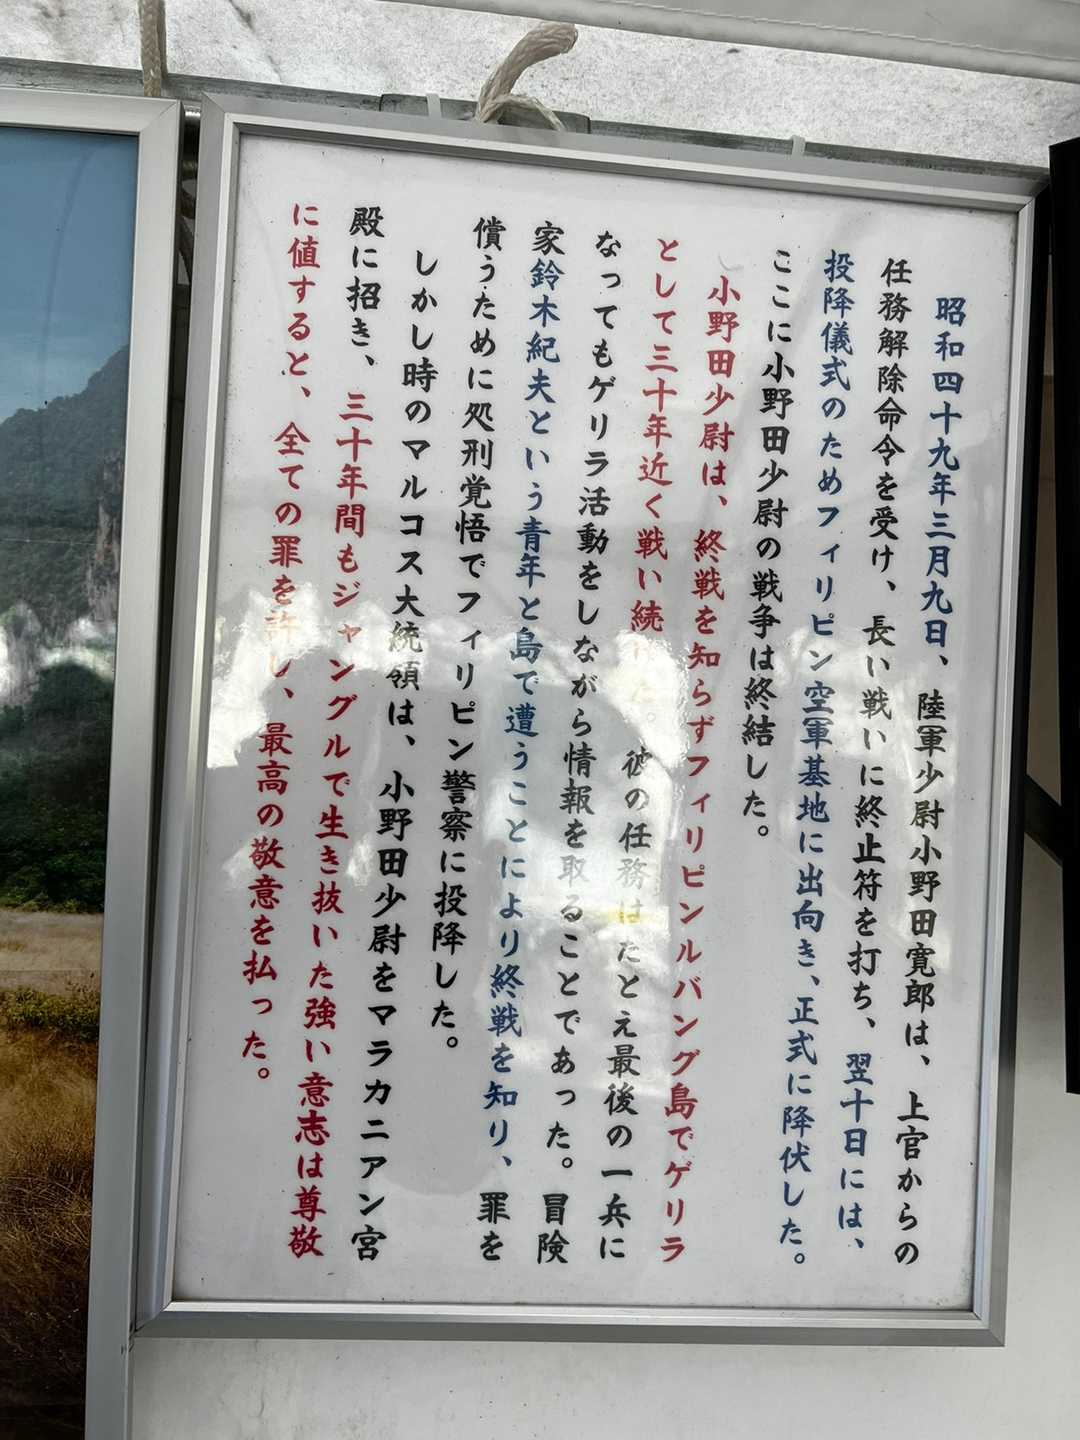 昭和四十九年三月九日、陸軍少尉小野田寛郎は、上官からの
任務解除命令を受け、長い戦いに終止符を打ち、翌十日には、
投降儀式のためフィリピン空軍基地に出向き、正式に降伏した。
ここに小野田少尉の戦争は終結した。
小野田少尉は、終戦を知らずフィリピンルバング島でゲリラ
として三十年近く戦い続けた。彼の任務はたとえ最後の一兵に
なってもゲリラ活動をしながら情報を取ることであった。冒険
家鈴木紀夫という青年と島で遭うことにより終戦を知り、罪を
償うために処刑覚悟でフィリピン警察に投降した。
しかし時のマルコス大統領は、小野田少尉をマラカニアン宮
殿に招き、三十年間もジャングルで生き抜いた強い意志は尊敬
に値すると、全ての罪を許し、最高の敬意を払った。